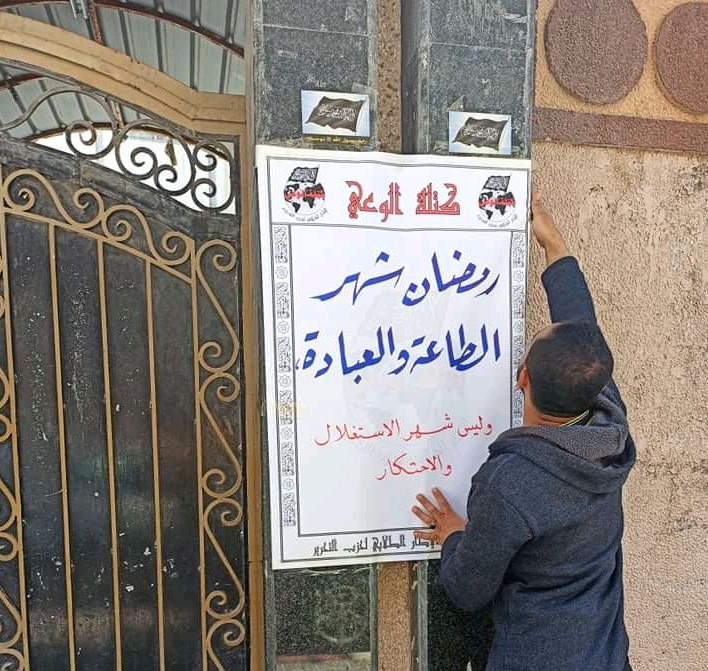 كتلة الوعي
رمضان شهر
الطاعة والعبادة،
وليس شهر الاستغلال
والاحتكار
الطلابي لحزب التحرير